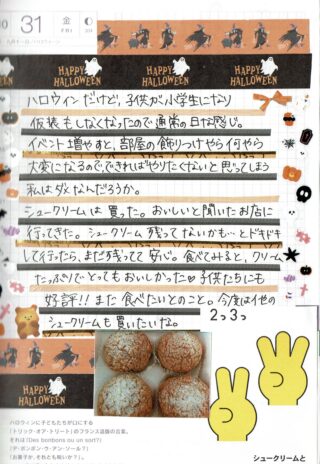 31
金
FRI
HAPPY HALLOWEEN
HAPPY HALLOWEEN
HAPPY HALLOWEEN
HAPPY HALLOWEEN
ハロウィンだけど、子供が小学生になり
仮装もしなくなったので通常の日な感じ。
イベント増やすと、部屋の飾りつけやら何やら
大変になるのでできればやりたくないと思ってしまう
私はダメなんだろうか。
シュークリームは買った。おいしいと聞いたお店に
行ってきた。シュークリーム残ってないかも…とドキドキ
して行ったら、まだ残ってて安心。食べてみると、クリーム
たっぷりでとってもおいしかった♡子供たちにも
好評!!また食べたいとのこと。今度は他の
シュークリームも買いたいな。
2っ3っ
HAPPY HALLOWEEN
ハロウィンに子どもたちが口にする
「トリック・オア・トリート」のフランス語版の言葉。
それは「Des bonbons ou un sort?」
「デ・ボンボン・ウ・アン・ソール?」
「お菓子か、それとも呪いか?」。
シュークリームと